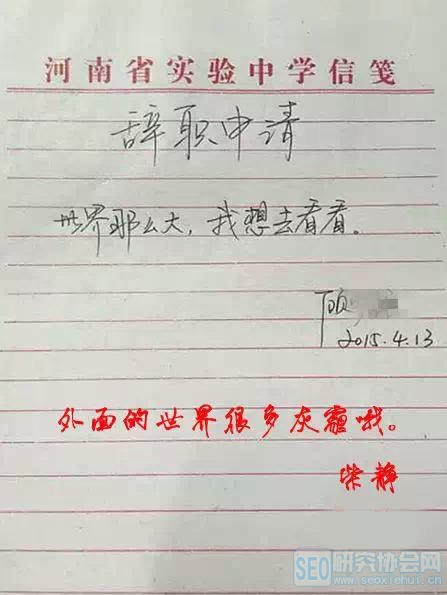 河南省实验中学信笺
辞职申请
世界那么大，我想去看看。
顾
2015.4.13
外面的世界很多灰霾哦。
柴静
SEO研究协会网
www.seoxiehui.cn